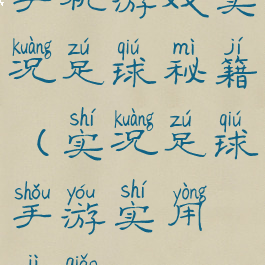 手机游戏实
kuàng zú qiú mì jí
况足球秘籍
shí kuàng zú qiú
（实况足球
shǒu yóu shí yòng
手游实用
jì qiǎo